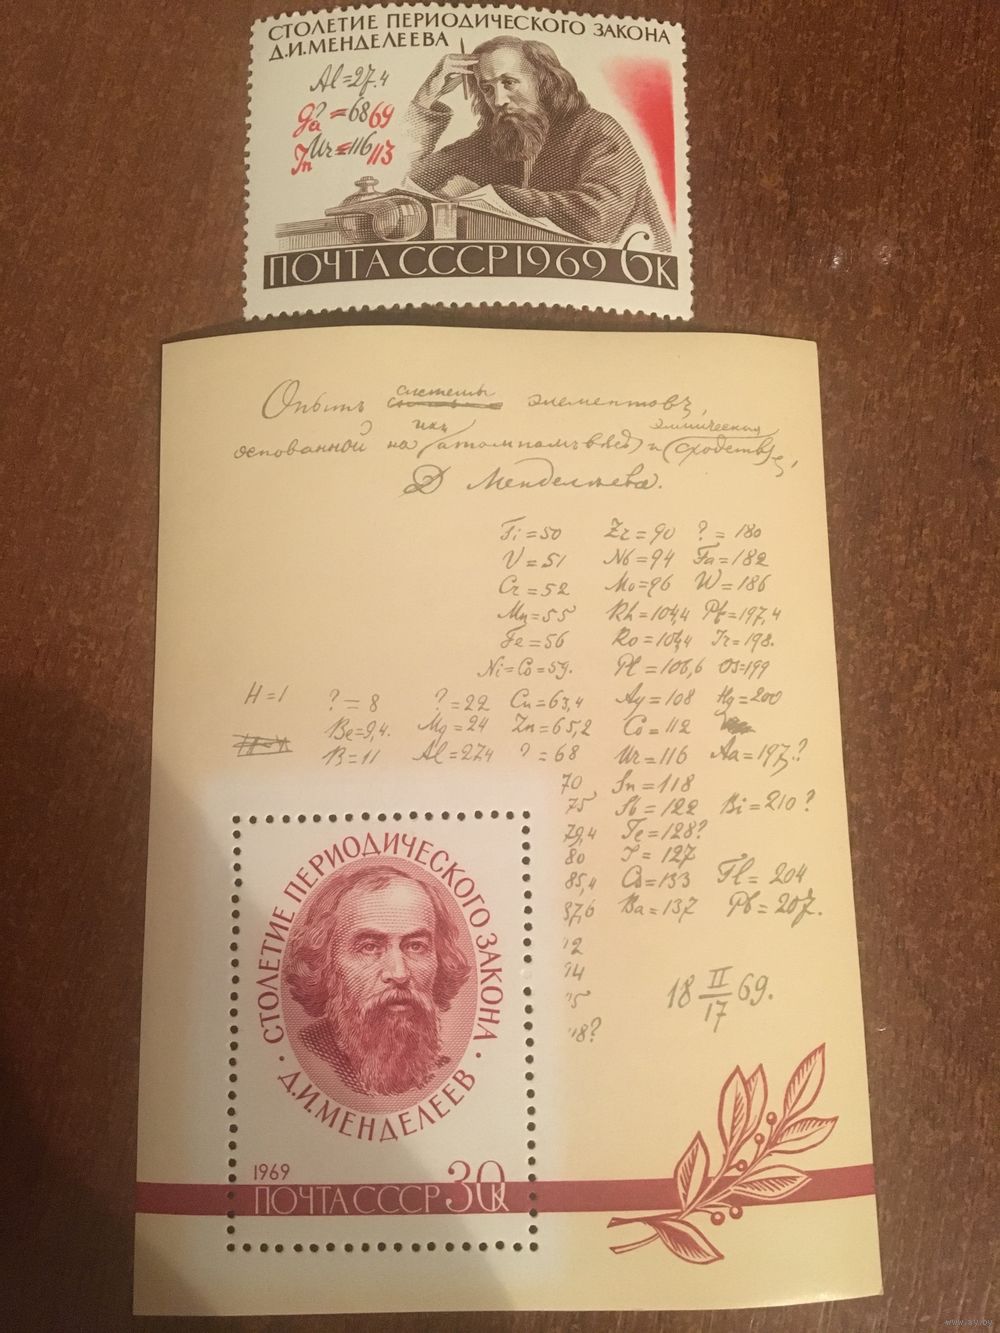 СТОЛЕТИЕ ПЕРИОДИЧЕСКОГО ЗАКОНА
Д.И.МЕНДЕЛЕЕВА
Al=27.4
Ga ?=68 69
In Ur=116 113
ПОЧТА СССР 1969 6к
Опытъ системы элементовъ,
основанной на ихъ атомномъ вѣсѣ и химическомъ сходствѣ,
Д Менделѣева.
Ti=50 Zr=90 ?=180
V=51 Nb=94 Ta=182
Cr=52 Mo=96 W=186
Mn=55 Rh=104,4 Pt=197,4
Fe=56 Ro=104,4 Ir=198.
Ni=Co=59. Pl=106,6 Os=199
H=1 ?=8 ?=22 Cu=63,4 Ag=108 Hg=200
Be=9,4. Mg=24 Zn=65,2 Cd=112
B=11 Al=27,4 ?=68 Ur=116 Au=197?
70 Sn=118
75 Sb=122 Bi=210?
79,4 Te=128?
80 J=127
85,4 Cs=133 Tl=204
87,6 Ba=137 Pb=207.
18 II/17 69.
18?
СТОЛЕТИЕ ПЕРИОДИЧЕСКОГО ЗАКОНА
· Д.И.МЕНДЕЛЕЕВ ·
1969
ПОЧТА СССР 30к
www.ay.by